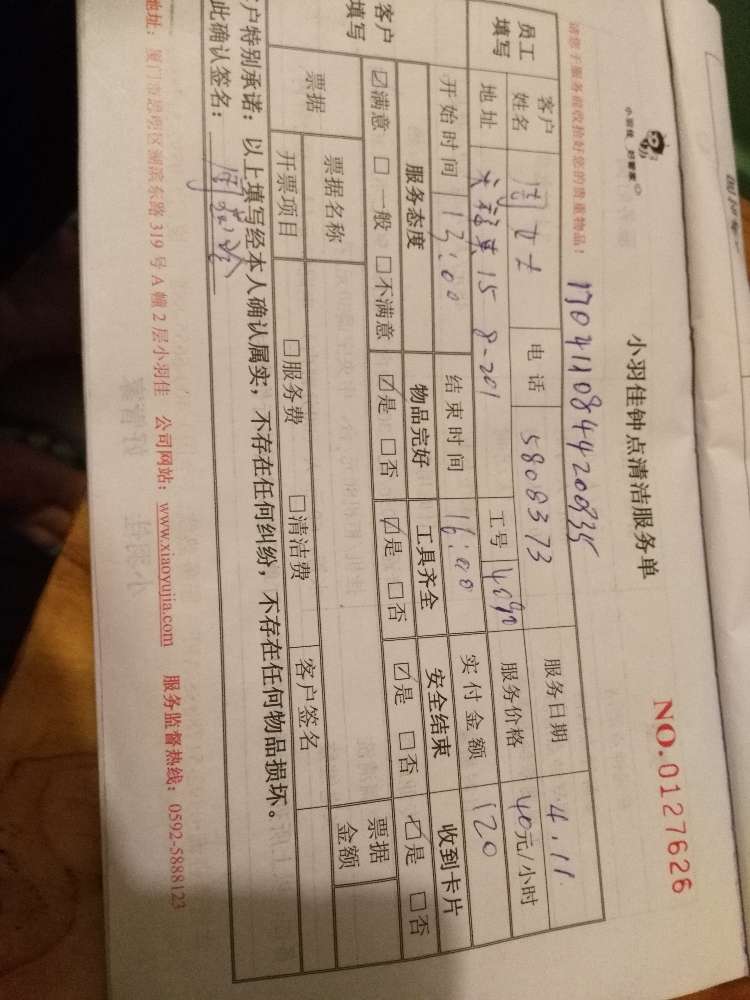 小羽佳 好管家
小羽佳钟点清洁服务单
NO.0127626
请您于服务前收拾好您的贵重物品!
员工填写
客户姓名 周女士 电话 5808373 服务日期 4.11.
地址 15 8-201 工号 服务价格 40元/小时
开始时间 13:00 结束时间 16:00 实付金额 120
客户填写
服务态度 物品完好 工具齐全 安全结束 收到卡片
☑满意 □一般 □不满意 ☑是 □否 ☑是 □否 ☑是 □否 ☑是 □否
票据 票据名称 票据金额
开票项目 □服务费 □清洁费 客户签名
户特别承诺：以上填写经本人确认属实，不存在任何纠纷，不存在任何物品损坏。
此确认签名：
地址：厦门市思明区湖滨东路319号A幢2层小羽佳 公司网站：www.xiaoyujia.com 服务监督热线：0592-5888123